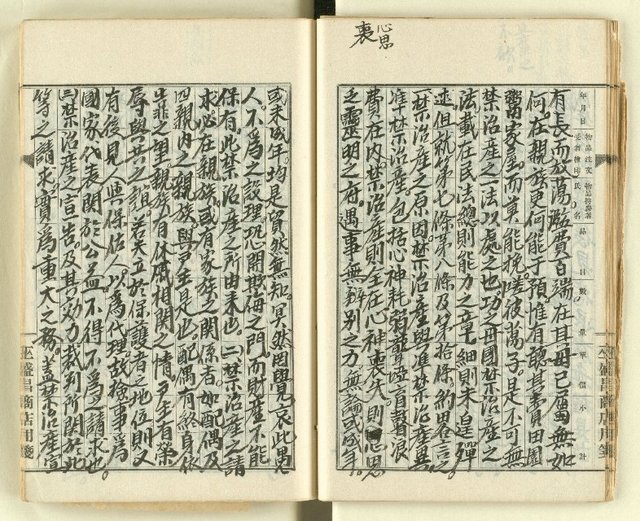 心思
衷
有長而放蕩、濫費百端、在其母已屬無如
何、在親族更何能干預、惟有聽其賣田園
鬻家屋、而莫能挽。嗟彼蕩子、是不可無
禁治產之一法以處之也、功之母國禁治產之
法載在民法總則能力之章、細則未遑殫
述、但就第七條、第八條及第十條約略言之、
一禁治產之原因、禁治產與準禁治產異、
準禁治產包括心神耗弱聾啞盲者浪
費在內、禁治產則全在心神喪失、則心思
之靈明之府、遇事無辨別之力、無論成年
或未成年、均是貿然無知、冥然罔覺、哀此愚
人、不為之設理、恐開欺侮之門、而財產不能
保有、此禁治產之所由來也、二禁治產之請
求必在親族、或有家族之關係者、如配偶及
四親內之親族、與戶主是也、配偶有終身依
靠之望、親族有休戚相關之情、戶主有榮
辱與共之誼、若夫立於保護者之地位、則又
有後見人與保佐人、以為代理、故檢事為
國家代表、關於公益、不得不為之請求也、
三禁治產之宣告、及其効力、裁判所關於此
等之請求、實為重大之務、蓋禁治產宣
年月日
品目
數量
單價
小計
坐盛昌商店用箋
坐盛昌商店用箋